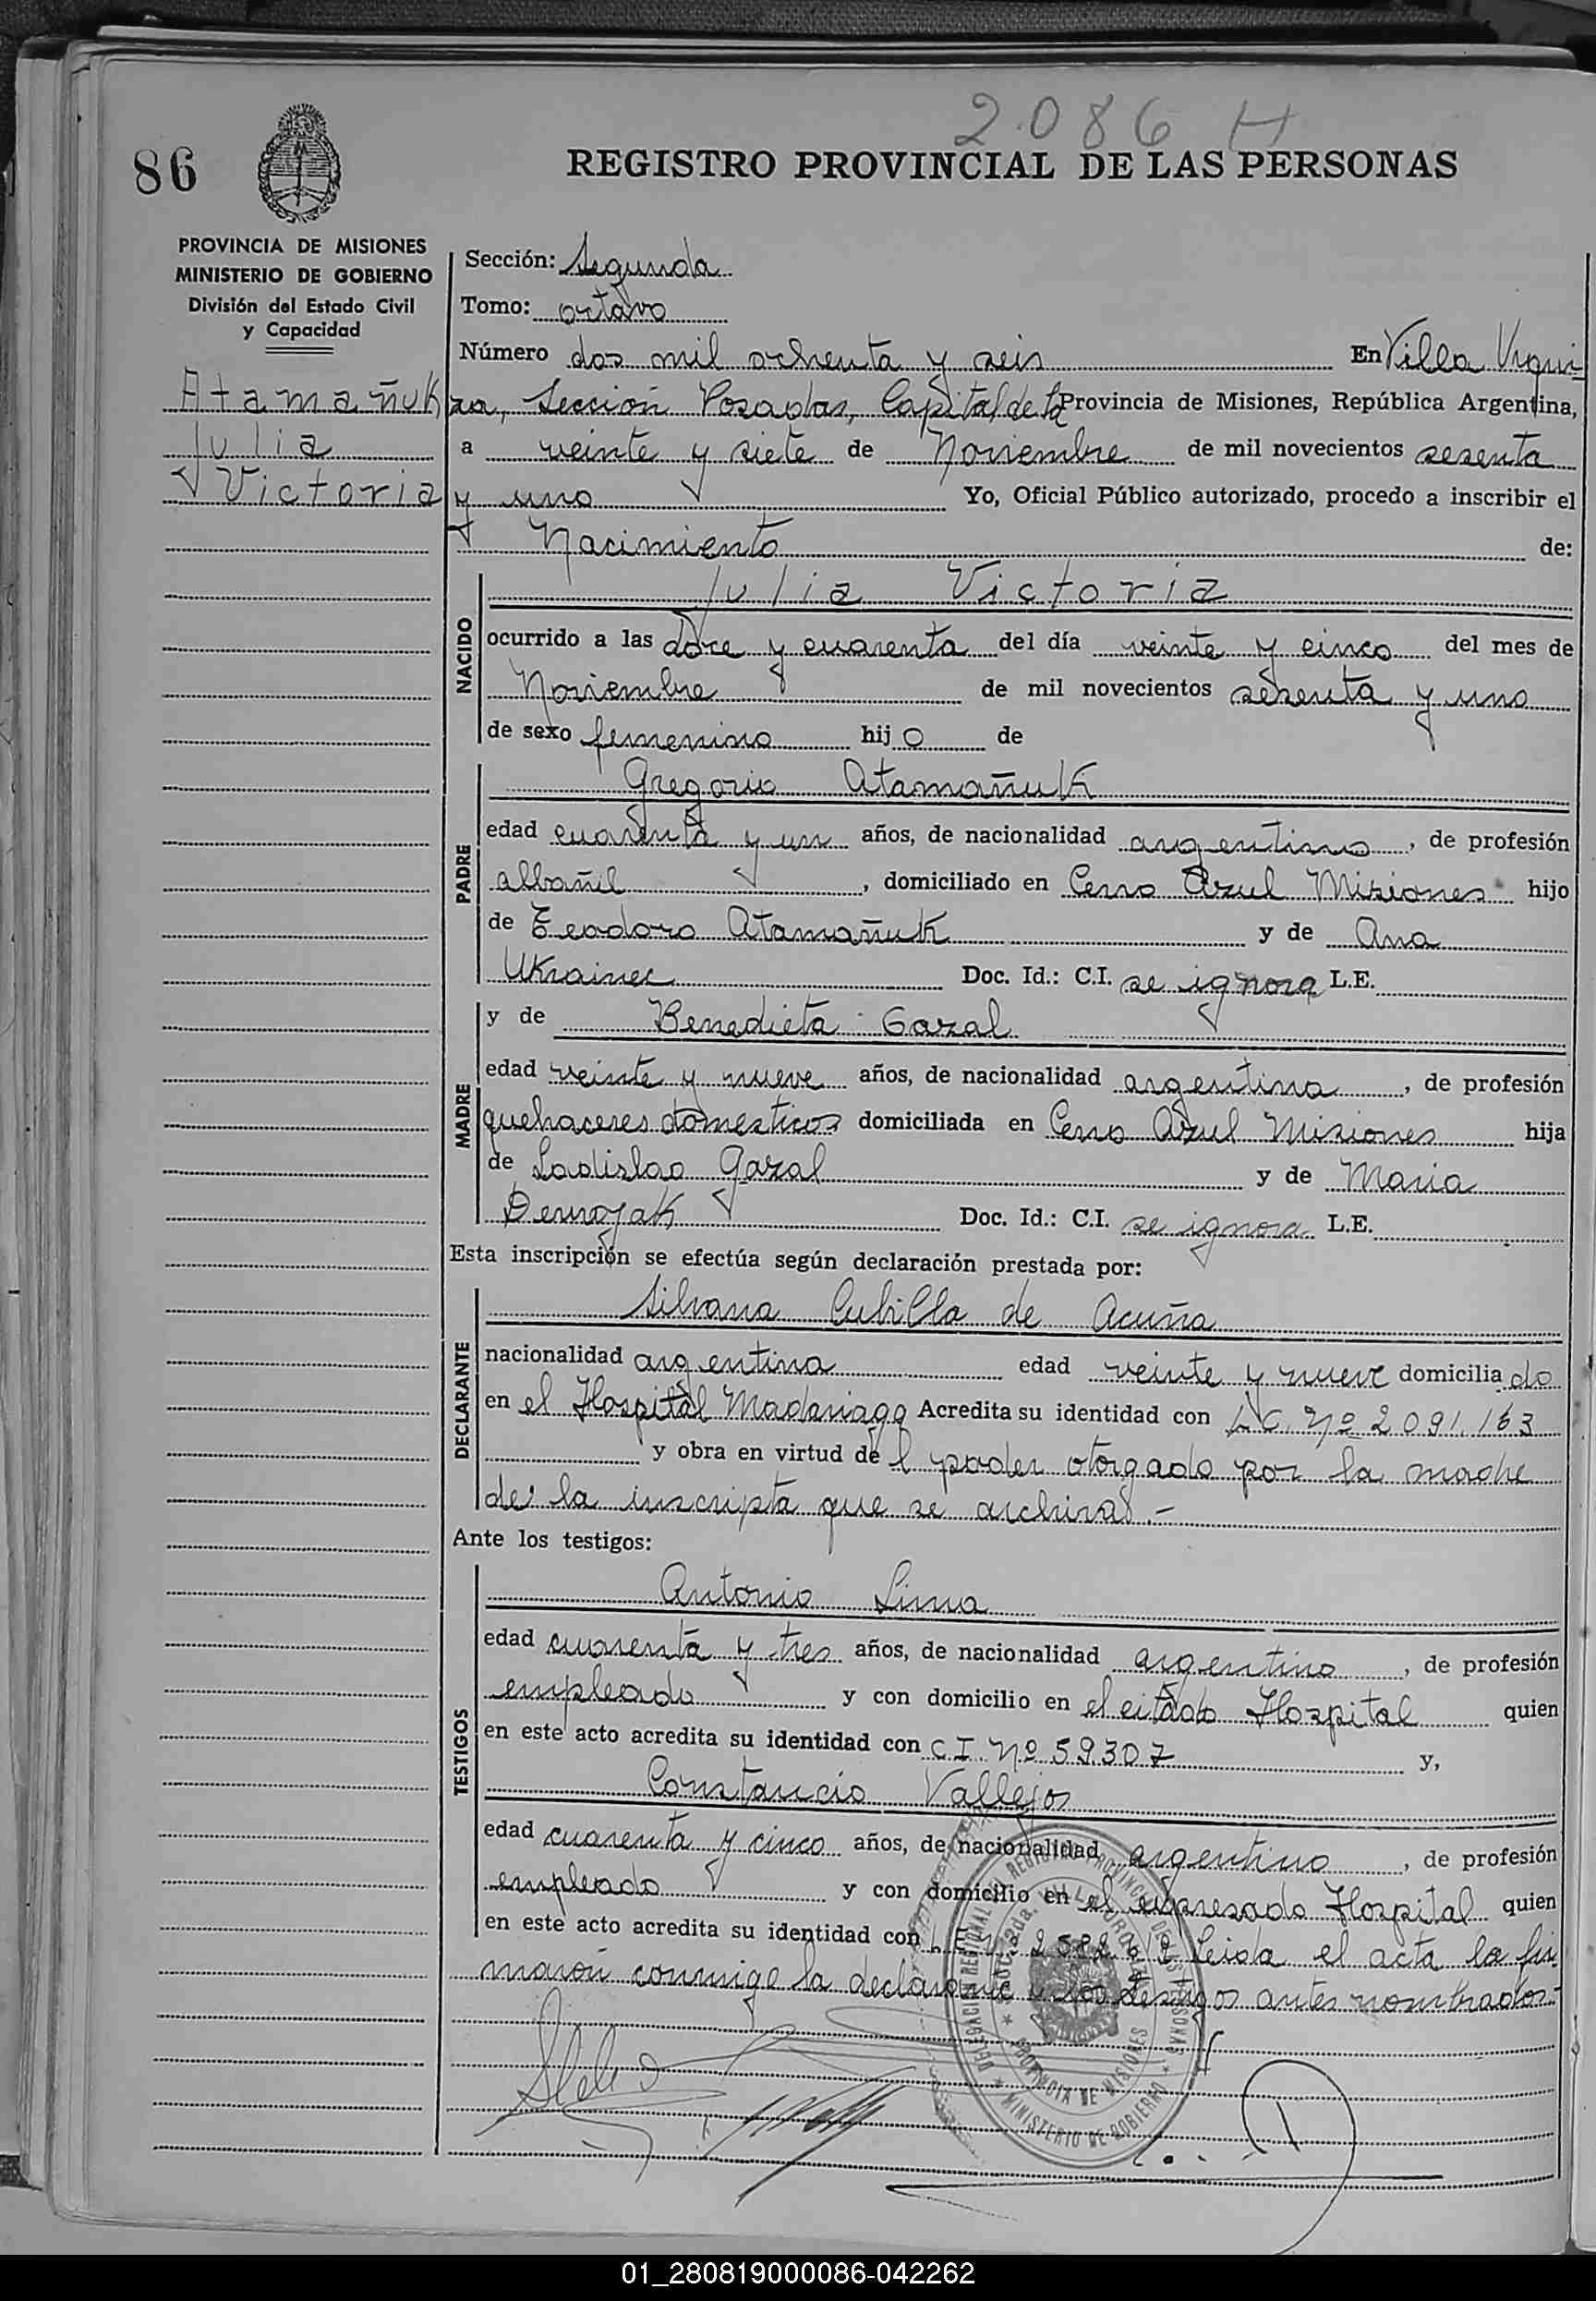 2086 H
86
REGISTRO PROVINCIAL DE LAS PERSONAS
PROVINCIA DE MISIONES
MINISTERIO DE GOBIERNO
División del Estado Civil
y Capacidad
Atamañuk
Julia
Victoria
Sección: Segunda
Tomo: octavo
Número dos mil ochenta y seis En Villa Urqui
za, Sección Posadas, Capital de la Provincia de Misiones, República Argentina,
a veinte y siete de Noviembre de mil novecientos sesenta
y uno Yo, Oficial Público autorizado, procedo a inscribir el
Nacimiento de:
NACIDO
Julia Victoria
ocurrido a las doce y cuarenta del día veinte y cinco del mes de
Noviembre de mil novecientos sesenta y uno
de sexo femenino hijo de
PADRE
Gregorio Atamañuk
edad cuarenta y un años, de nacionalidad argentino, de profesión
albañil, domiciliado en Cerro Azul Misiones hijo
de Teodoro Atamañuk y de Ana
Ukrainec Doc. Id.: C.I. se ignora L.E.
MADRE
y de Benedicta Gazal
edad veinte y nueve años, de nacionalidad argentina, de profesión
quehaceres domesticos domiciliada en Cerro Azul Misiones hija
de Ladislao Gazal y de Maria
Doc. Id.: C.I. se ignora L.E.
Esta inscripción se efectúa según declaración prestada por:
DECLARANTE
Silvana Cubilla de Acuña
nacionalidad argentina edad veinte y nueve domiciliado
en el Hospital Madariaga Acredita su identidad con L.C. Nº 2.091.163
y obra en virtud del poder otorgado por la madre
de la inscripta que se archiva.-
Ante los testigos:
TESTIGOS
Antonio Lima
edad cuarenta y tres años, de nacionalidad argentino, de profesión
empleado y con domicilio en el citado Hospital quien
en este acto acredita su identidad con C.I. Nº 59.307 y,
Constancio Vallejos
edad cuarenta y cinco años, de nacionalidad argentino, de profesión
empleado y con domicilio en el expresado Hospital quien
en este acto acredita su identidad con L.E. Leida el acta la fir
maron conmigo la declarante y los testigos antes nombrados.-
DELEGACION REGIONAL DEL REGISTRO PROVINCIAL DE LAS PERSONAS
MINISTERIO DE GOBIERNO
PROVINCIA DE MISIONES
01_280819000086-042262